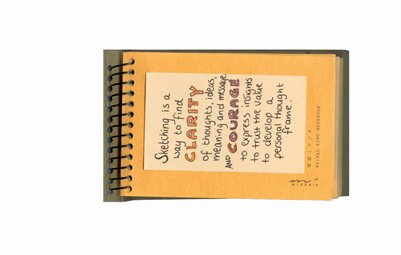 Sketching is a
way to find
CLARITY
of thoughts, ideas,
meaning and message
AND COURAGE
to express insights
to trust the value
to develop a
personal thought
frame.
SPIRAL RING NOTEBOOK
MIDORI